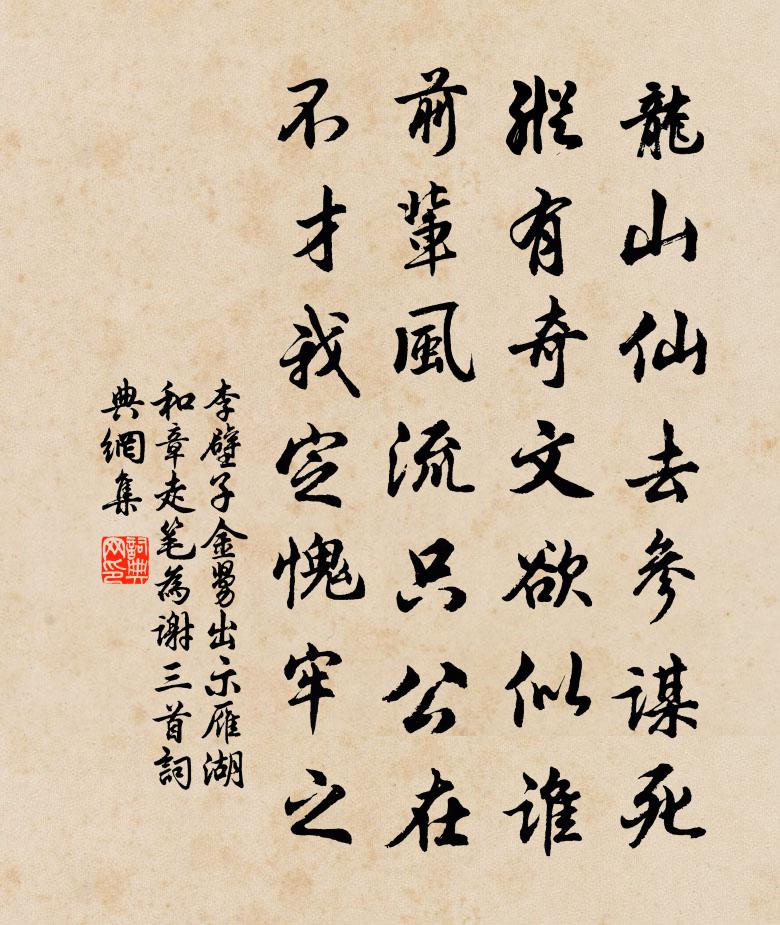 龍山仙去參謀死
縱有奇文欲似誰
前輩風流只公在
不才我定愧牢之
李壁子金舅出示雁湖
和章走笔為谢三首詞
典網集
詞典
网印